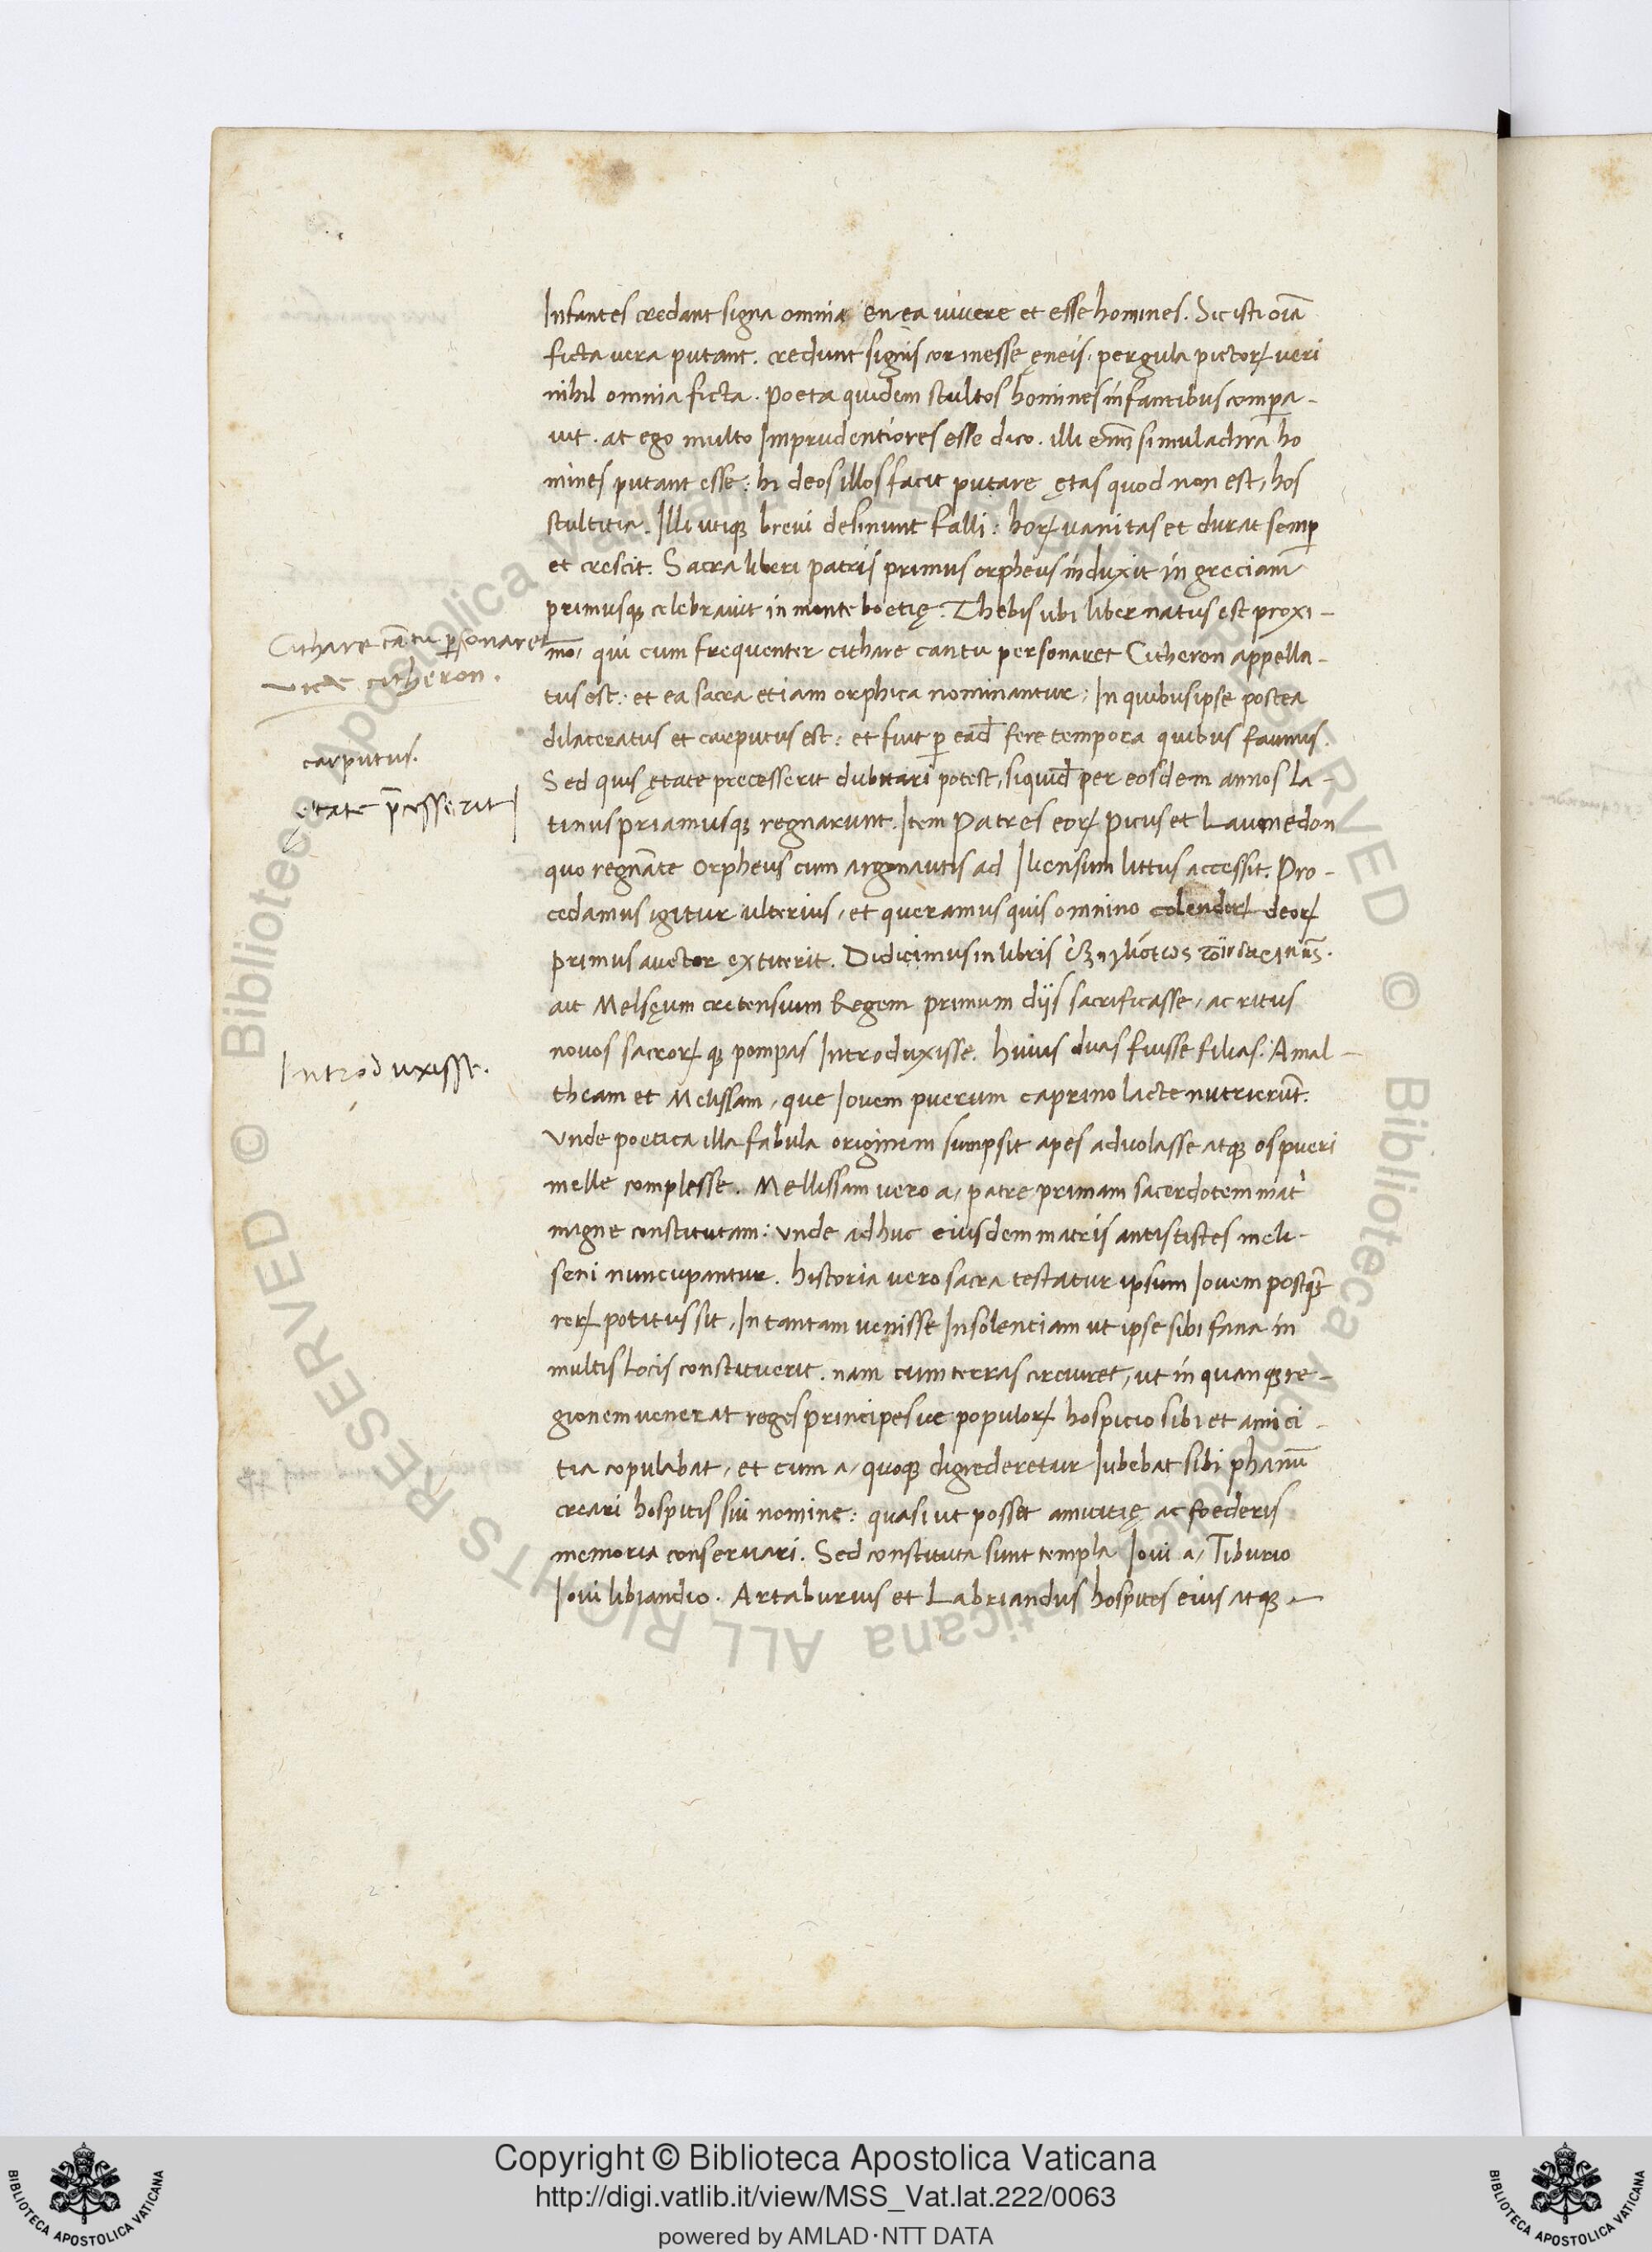 Infantes credant signa omnia en ea vivere et esse homines. Sic isti oīa
ficta vera putant. credunt signis cor inesse ęneis. pergula pictoꝝ veri
nihil omnia ficta. Poeta quidem stultos homines infantibus compara-
vit. at ego multo Imprudentiores esse dico. illi enī simulachra ho
mines putant esse: hi deos illos facit putare ętas quod non est, hos
stultitia. Illi utiqꝫ brevi desinunt falli: hoꝝ vanitas et durat semꝑ
et crescit. Sacra liberi patris primus orpheus induxit in greciam
primusqꝫ celebravit in monte boetię. Thebis ubi liber natus est proxi-
Cithare cātu ꝑsonaret
vide citheron.
mo, qui cum frequenter cithare cantu personaret Citheron appella-
tus est: et ea sacra etiam orphica nominantur, In quibus ipse postea
carputus.
dilaceratus et carputus est: et fuit ꝑ ead̄ fere tempora quibus faunus.
etate p̄cesserit
Sed quis ętate precesserit dubitari potest, siquid̄ per eosdem annos La-
tinus priamusqꝫ regnarunt. Item Patres eoꝝ Picus et Laumedon
quo regnāte Orpheus cum argonautis ad Iliensium littus accessit. Pro-
cedamus igitur ulterius, et queramus quis omnino colendoꝝ deoꝝ
primus auctor extiterit. Didicimus in libris
ait Melsęum cretensium Regem primum diis sacrificasse, ac ritus
Introduxisse.
novos sacroꝝqꝫ pompas Introduxisse. Huius duas fuisse filias. Amal-
theam et Melissam, que Iovem puerum caprino lacte nutrierūt.
Unde poetica illa fabula originem sumpsit apes advolasse atqꝫ os pueri
melle complesse. Mellissam vero a, patre primam sacerdotem mat̄
magne constitutam: unde adhuc eiusdem matris antististes meli-
seni nuncupantur. Historia vero sacra testatur ipsum Iovem postqꝫ
reꝝ potitus sit, In tantam venisse Insolentiam ut ipse sibi fana in
multis locis constituerit. nam cum terras circuiret, ut in quanqꝫ re-
gionem venerat reges principesve populoꝝ hospicio sibi et amici-
tia copulabat, et cum a, quoqꝫ digrederetur Iubebat sibi phanū
creari hospitis sui nomine: quasi ut posset amicitię ac foederis
memoria conservari. Sed constituta sunt templa Iovi a, Tiburio
Iovi libiandio. Artaburius et Labriandus hospites eius atqꝫ
Copyright © Biblioteca Apostolica Vaticana
http://digi.vatlib.it/view/MSS_Vat.lat.222/0063
powered by AMLAD·NTT DATA
BIBLIOTECA APOSTOLICA VATICANA
BIBLIOTECA APOSTOLICA VATICANA
© Biblioteca Apostolica Vaticana ALL RIGHTS RESERVED